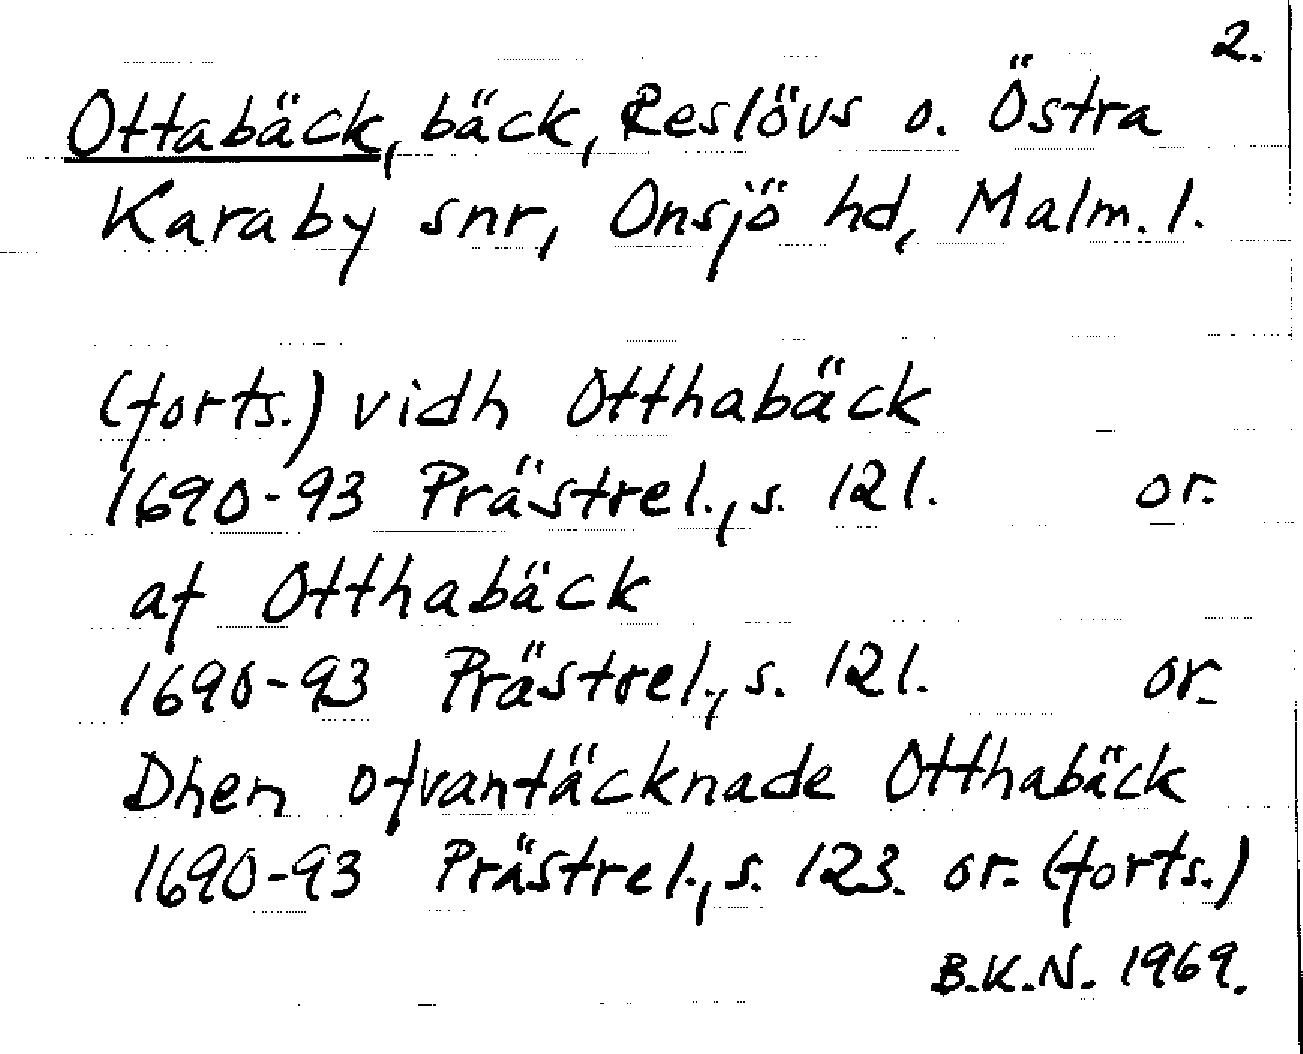 2.
Ottabäck, bäck, Reslövs o. Östra
Karaby snr, Onsjö hd, Malm. l.
(forts.) vidh Otthabäck
1690-93 Prästrel., s. 121. or.
af Otthabäck
1690-93 Prästrel., s. 121. or.
Dhen ofvantäcknade Otthabäck
1690-93 Prästrel., s. 123. or. (forts.)
B.K.N. 1969.